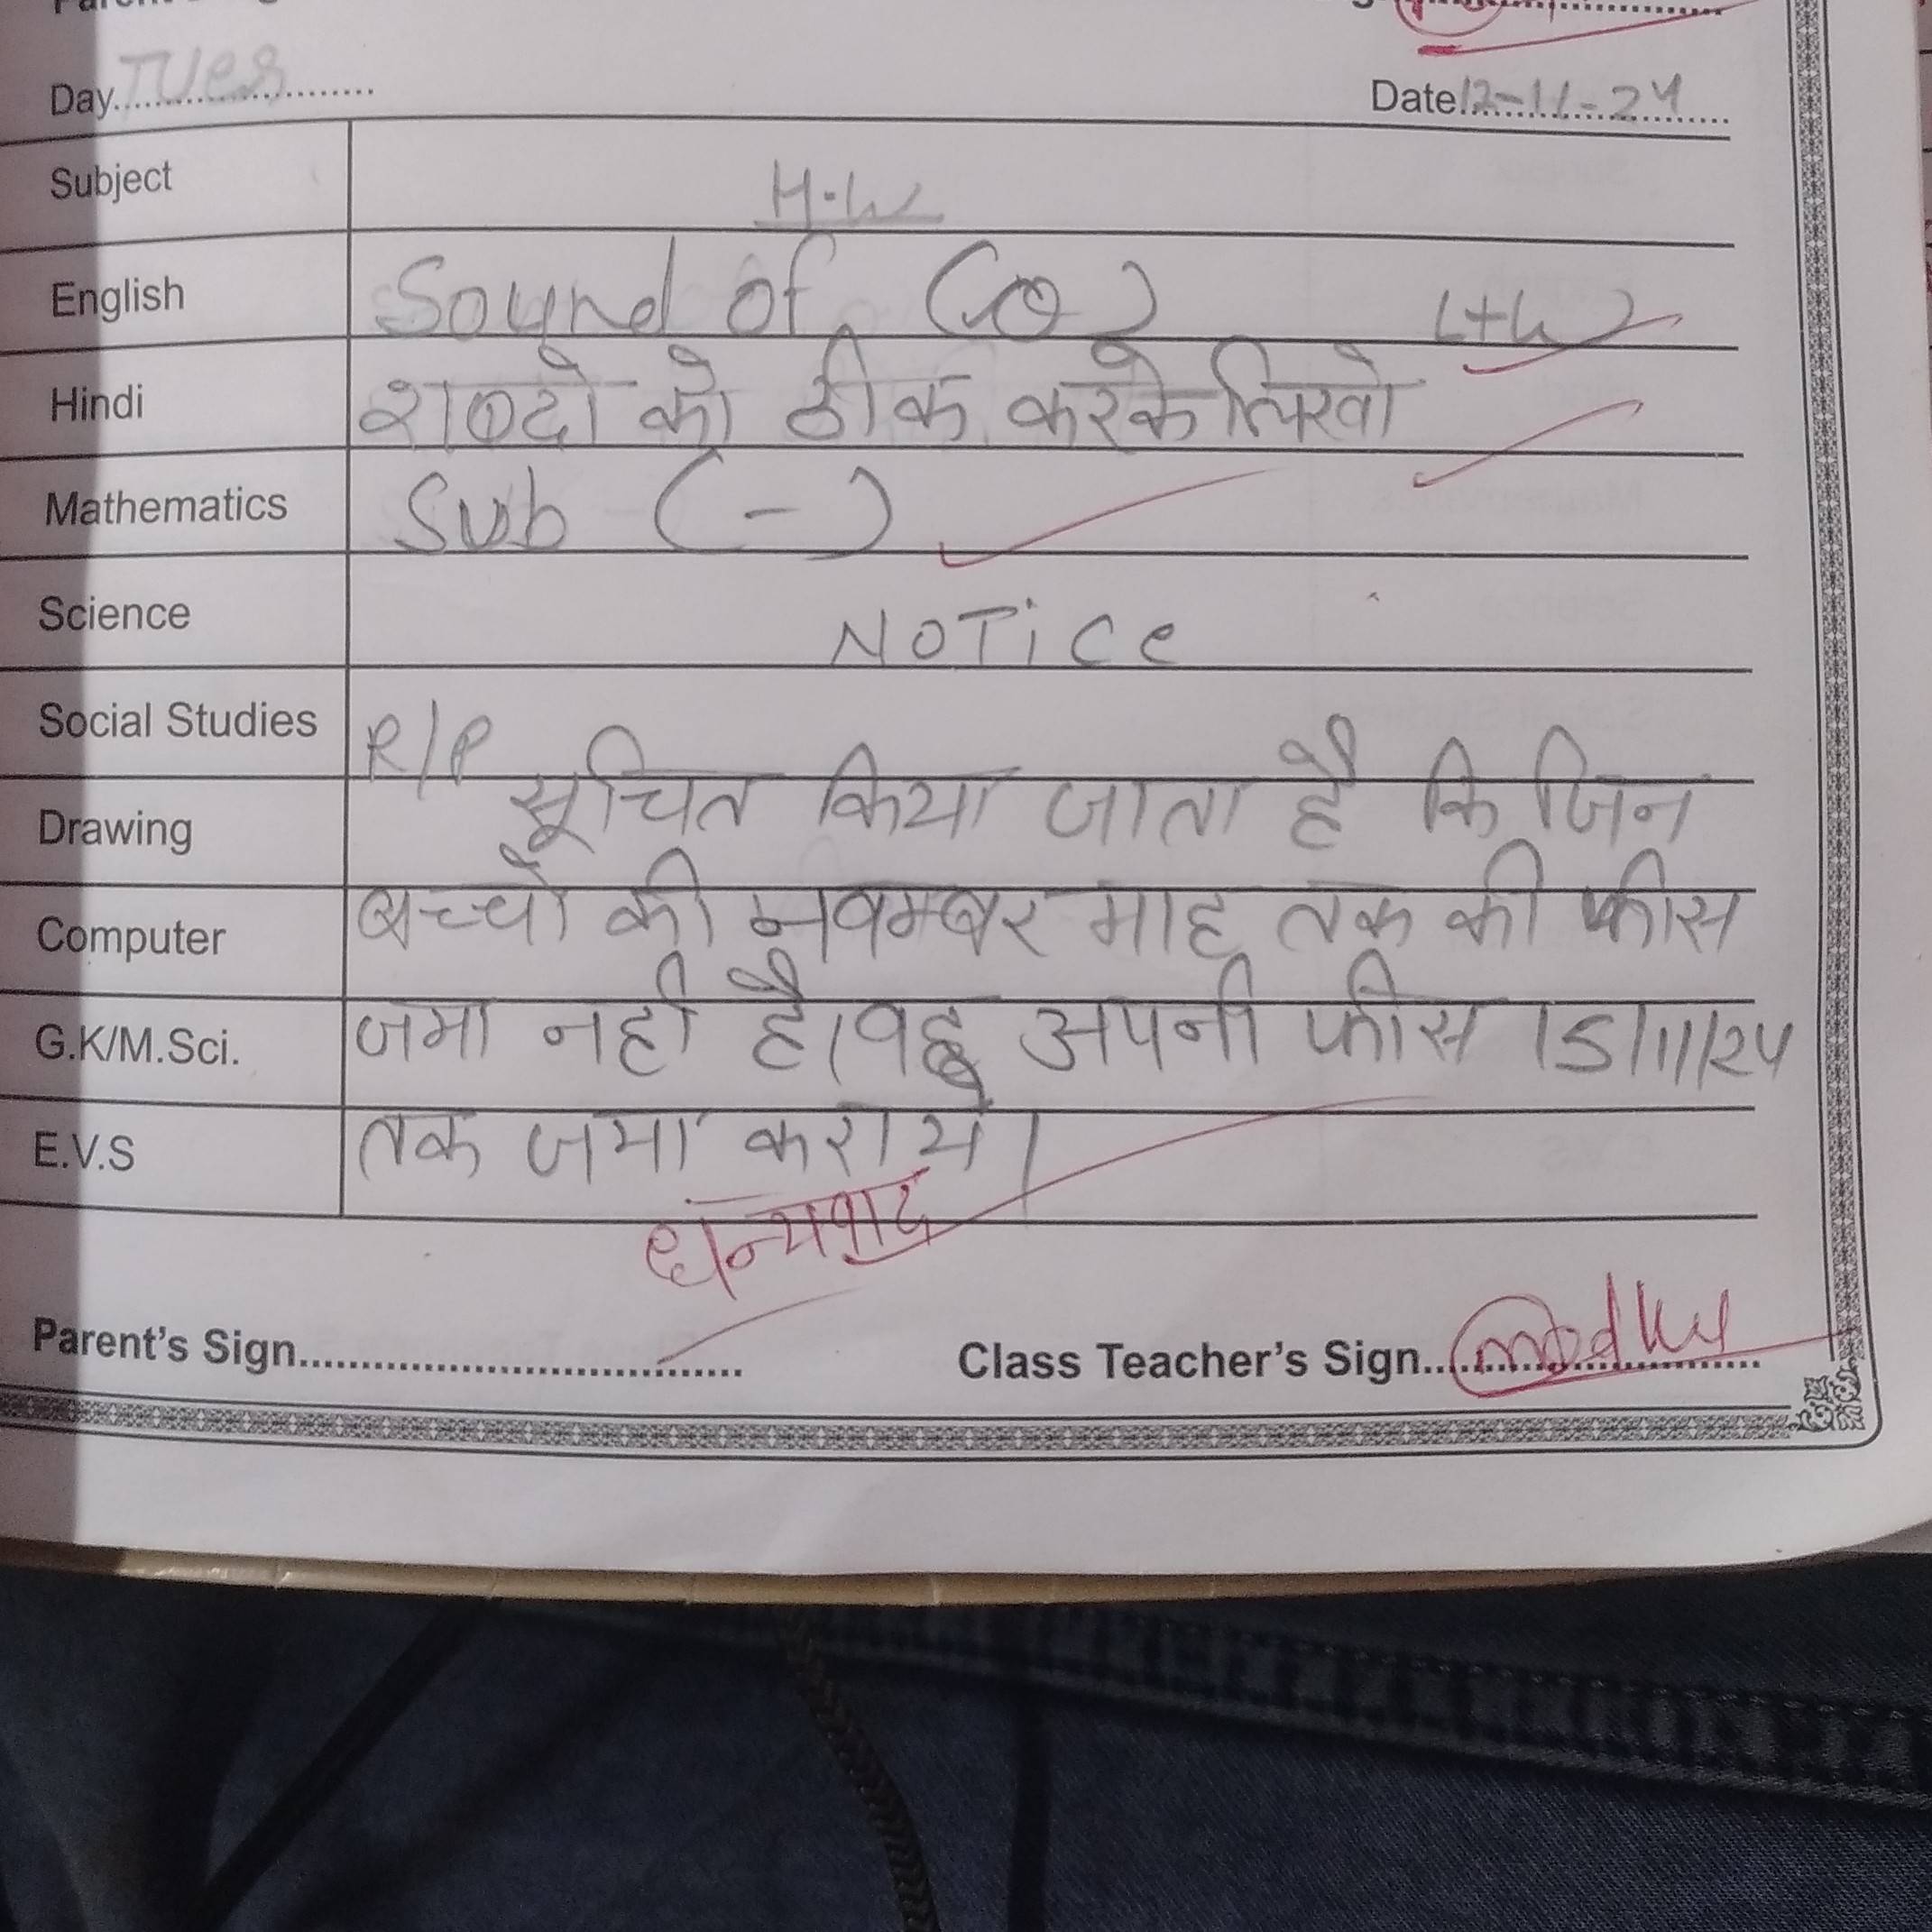 Day TUes Date 12-11-24
Subject H.W
English Sound of (o) L+W
Hindi शब्दो को ठीक करके लिखो
Mathematics Sub (-)
Science NOTice
Social Studies R/P
Drawing सूचित किया जाता है कि जिन
Computer बच्चों की नवम्बर माह तक की फीस
G.K/M.Sci. जमा नही है। वह अपनी फीस 15/11/24
E.V.S तक जमा कराये।
धन्यवाद
Parent's Sign Class Teacher's Sign Madhu